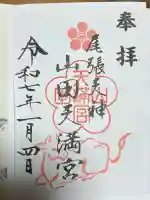 奉拝
尾張天神
山田天満宮
令和七年一月四日